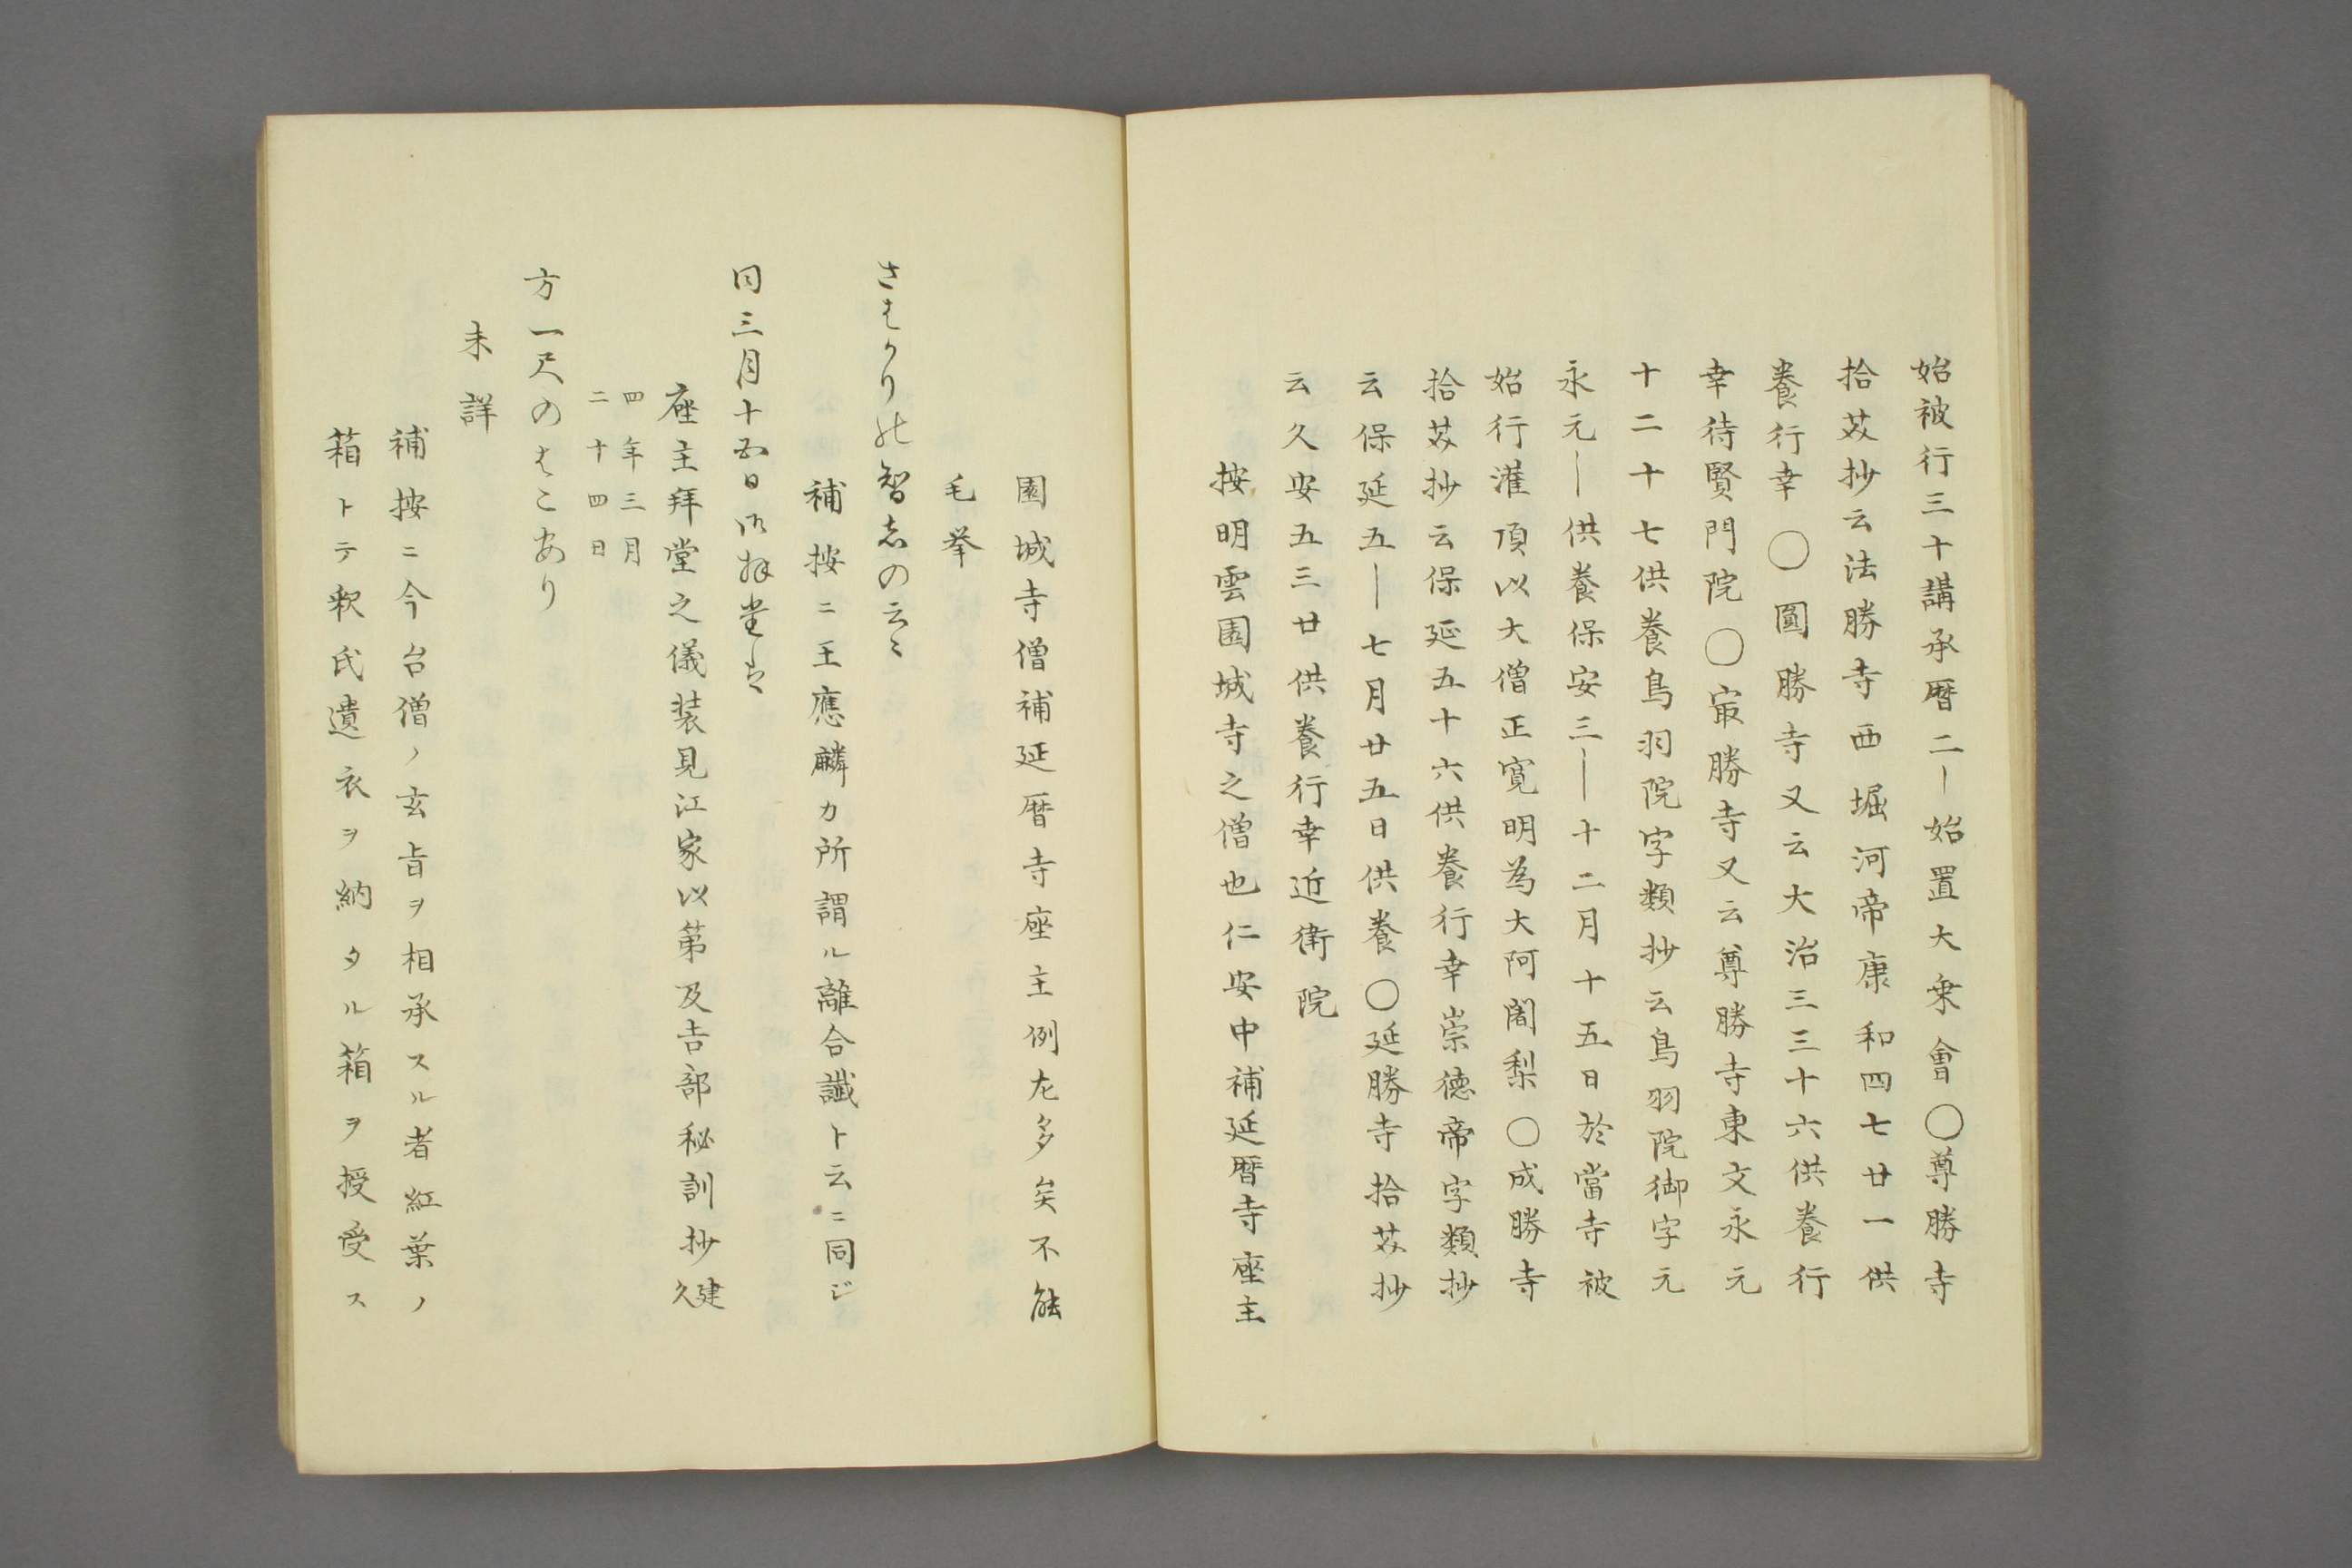 始被行三十講承暦二―始置大乗會〇尊勝寺
拾芥抄云法勝寺西堀河帝康和四七廿一供
養行幸〇圓勝寺又云大治三三十六供養行
幸待賢門院〇㝡勝寺又云尊勝寺東文永元
十二十七供養鳥羽院字類抄云鳥羽院御字元
永元―供養保安三―十二月十五日於當寺被
始行灌頂以大僧正寛明為大阿闍梨〇成勝寺
拾芥抄云保延五十六供養行幸崇徳帝字類抄
云保延五―七月廿五日供養〇延勝寺拾芥抄
云久安五三廿供養行幸近衛院
按明雲園城寺之僧也仁安中補延暦寺座主
園城寺僧補延暦寺座主例尤多矣不能
毛挙
さはかりの智者の云〻
補按ニ王應麟カ所謂ル離合讖ト云ニ同ジ
同三月十五日御拝堂
座主拝堂之儀装見江家以第及吉部秘訓抄建久
四年三月
二十四日
方一尺のはこあり
未詳
補按ニ今台僧ノ玄旨ヲ相承スル者紅葉ノ
箱トテ釈氏遺衣ヲ納タル箱ヲ授受ス